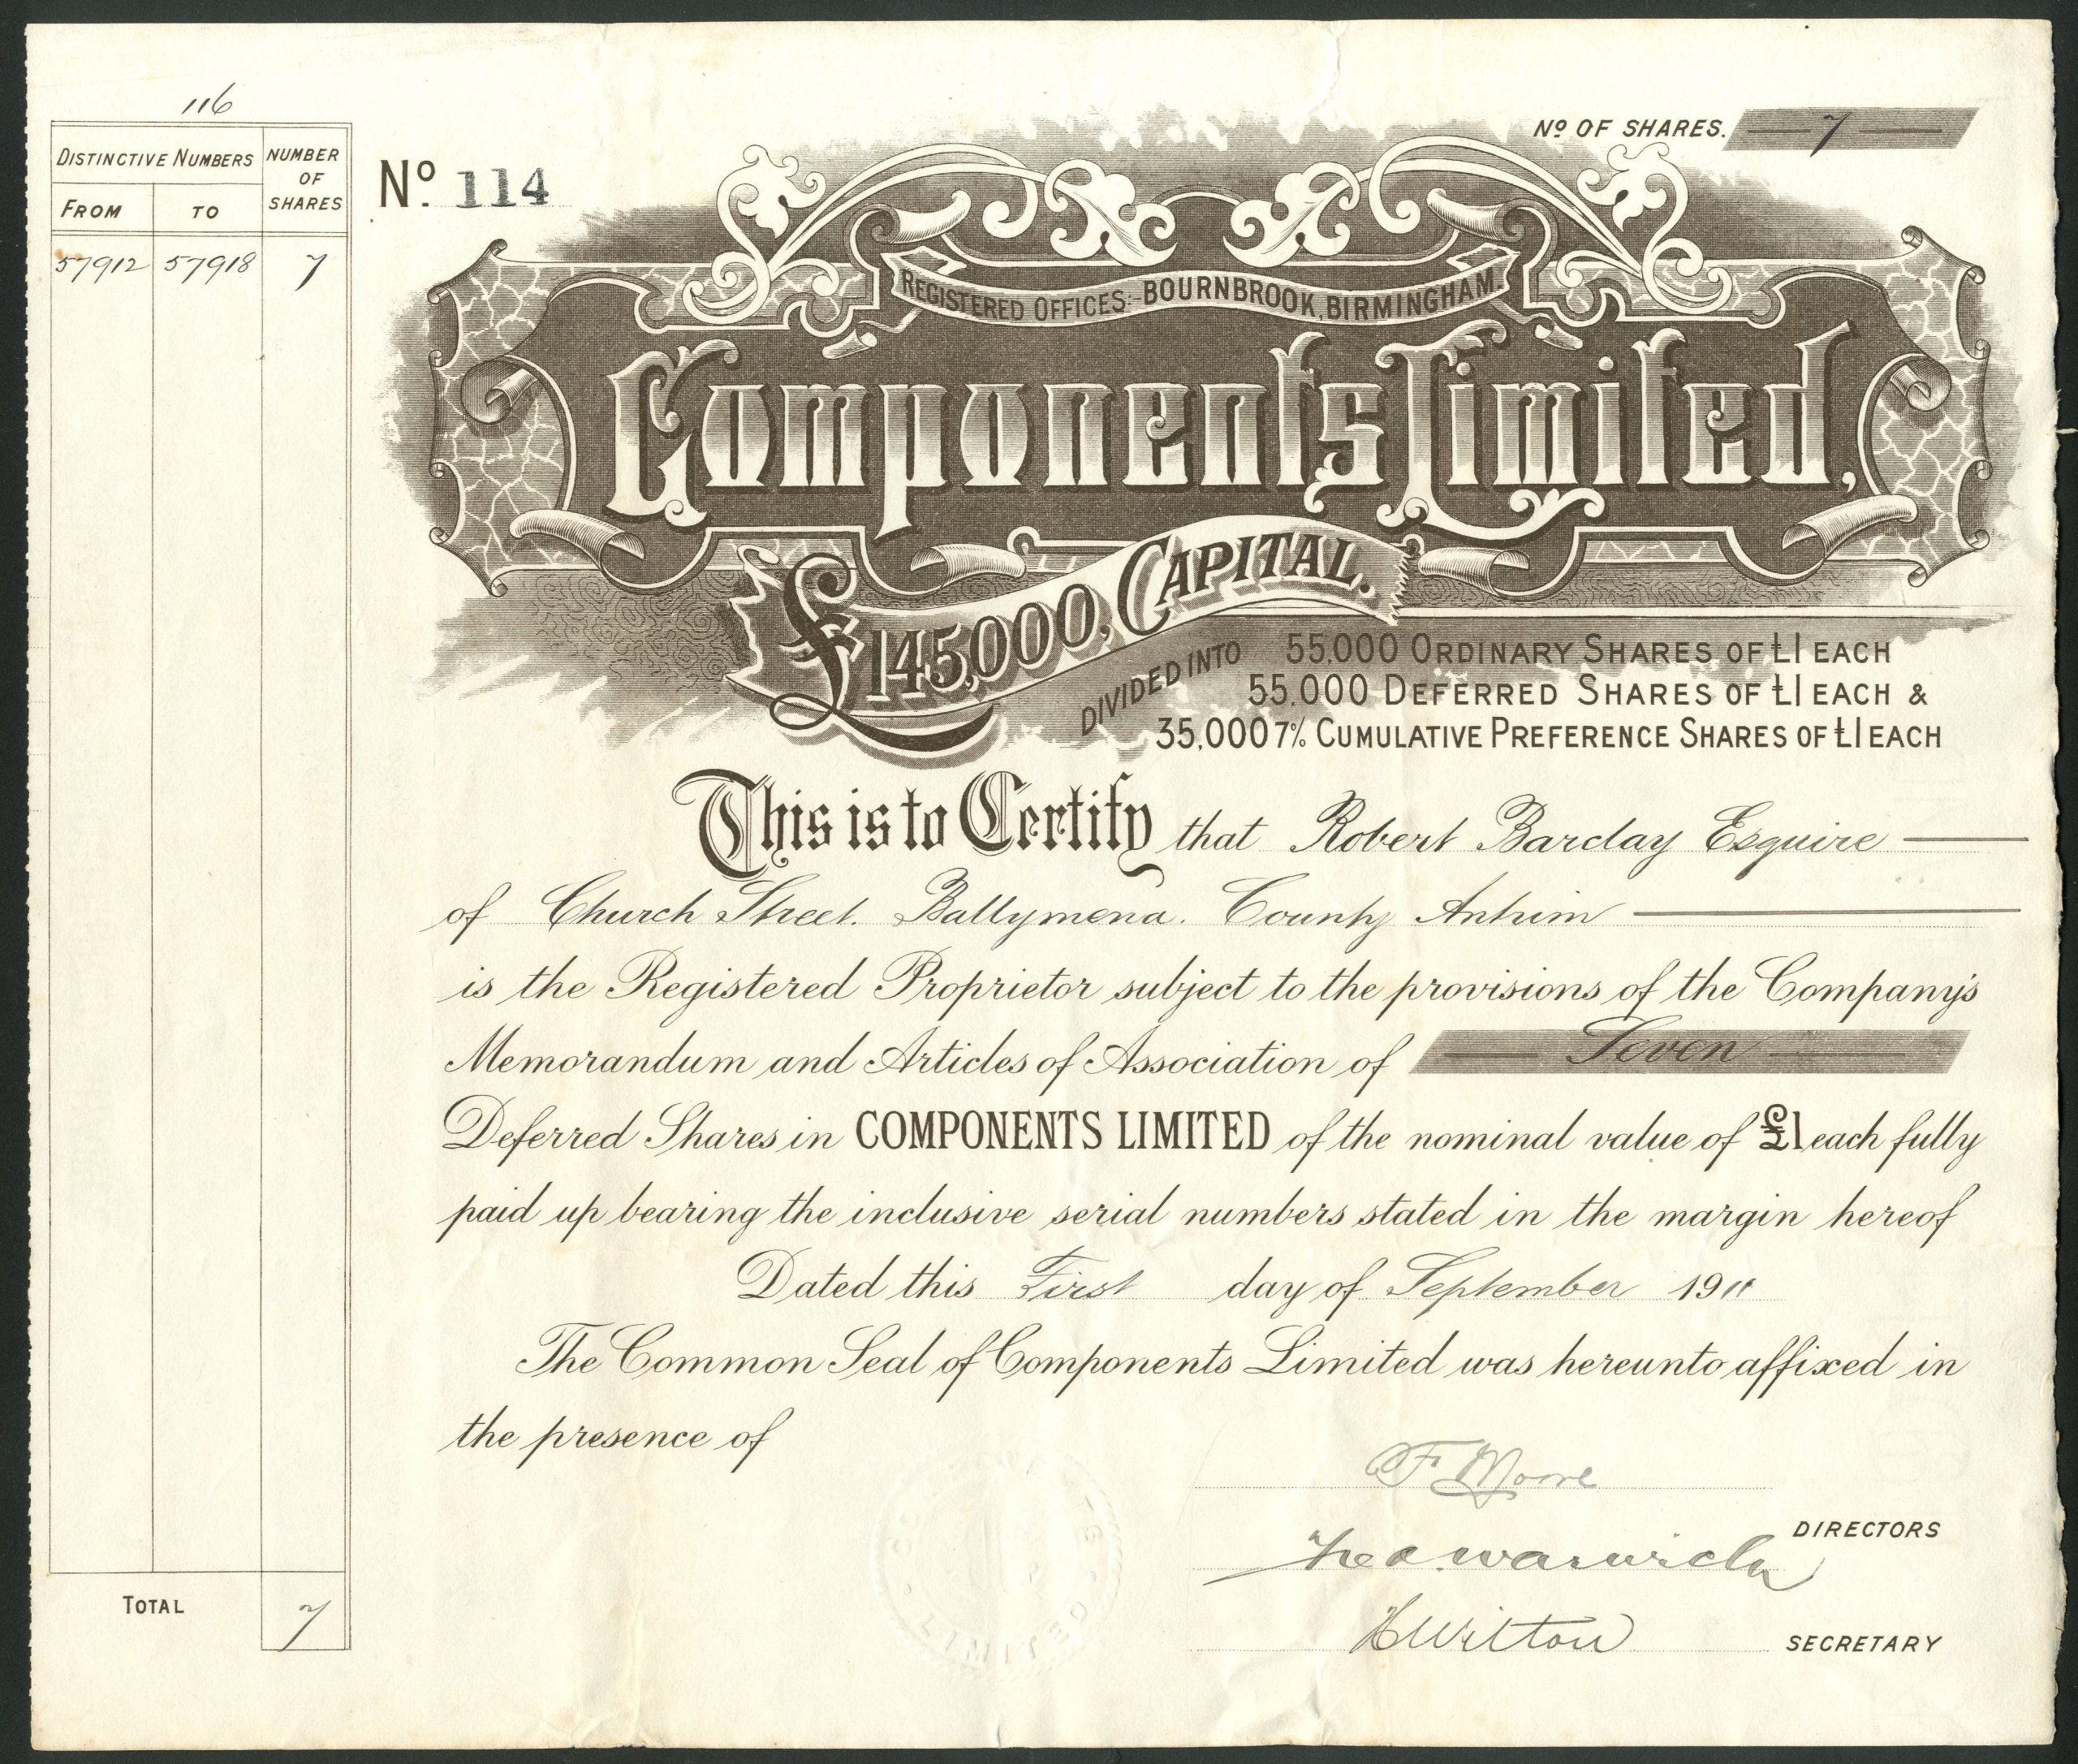 116
DISTINCTIVE NUMBERS NUMBER OF SHARES
FROM TO
57912 57918 7
TOTAL 7
No. 114
No. OF SHARES. 7
REGISTERED OFFICES:- BOURNBROOK, BIRMINGHAM.
Components Limited,
£145,000, CAPITAL.
DIVIDED INTO 55,000 ORDINARY SHARES OF £1 EACH
55,000 DEFERRED SHARES OF £1 EACH &
35,000 7% CUMULATIVE PREFERENCE SHARES OF £1 EACH
This is to Certify that Robert Barclay Esquire
of Church Street. Ballymena. County Antrim
is the Registered Proprietor subject to the provisions of the Company's
Memorandum and Articles of Association of Seven
Deferred Shares in COMPONENTS LIMITED of the nominal value of £1 each fully
paid up bearing the inclusive serial numbers stated in the margin hereof
Dated this First day of September 1911
The Common Seal of Components Limited was hereunto affixed in
the presence of
F Moore
DIRECTORS
warwick
H Wilton SECRETARY
LIMITED